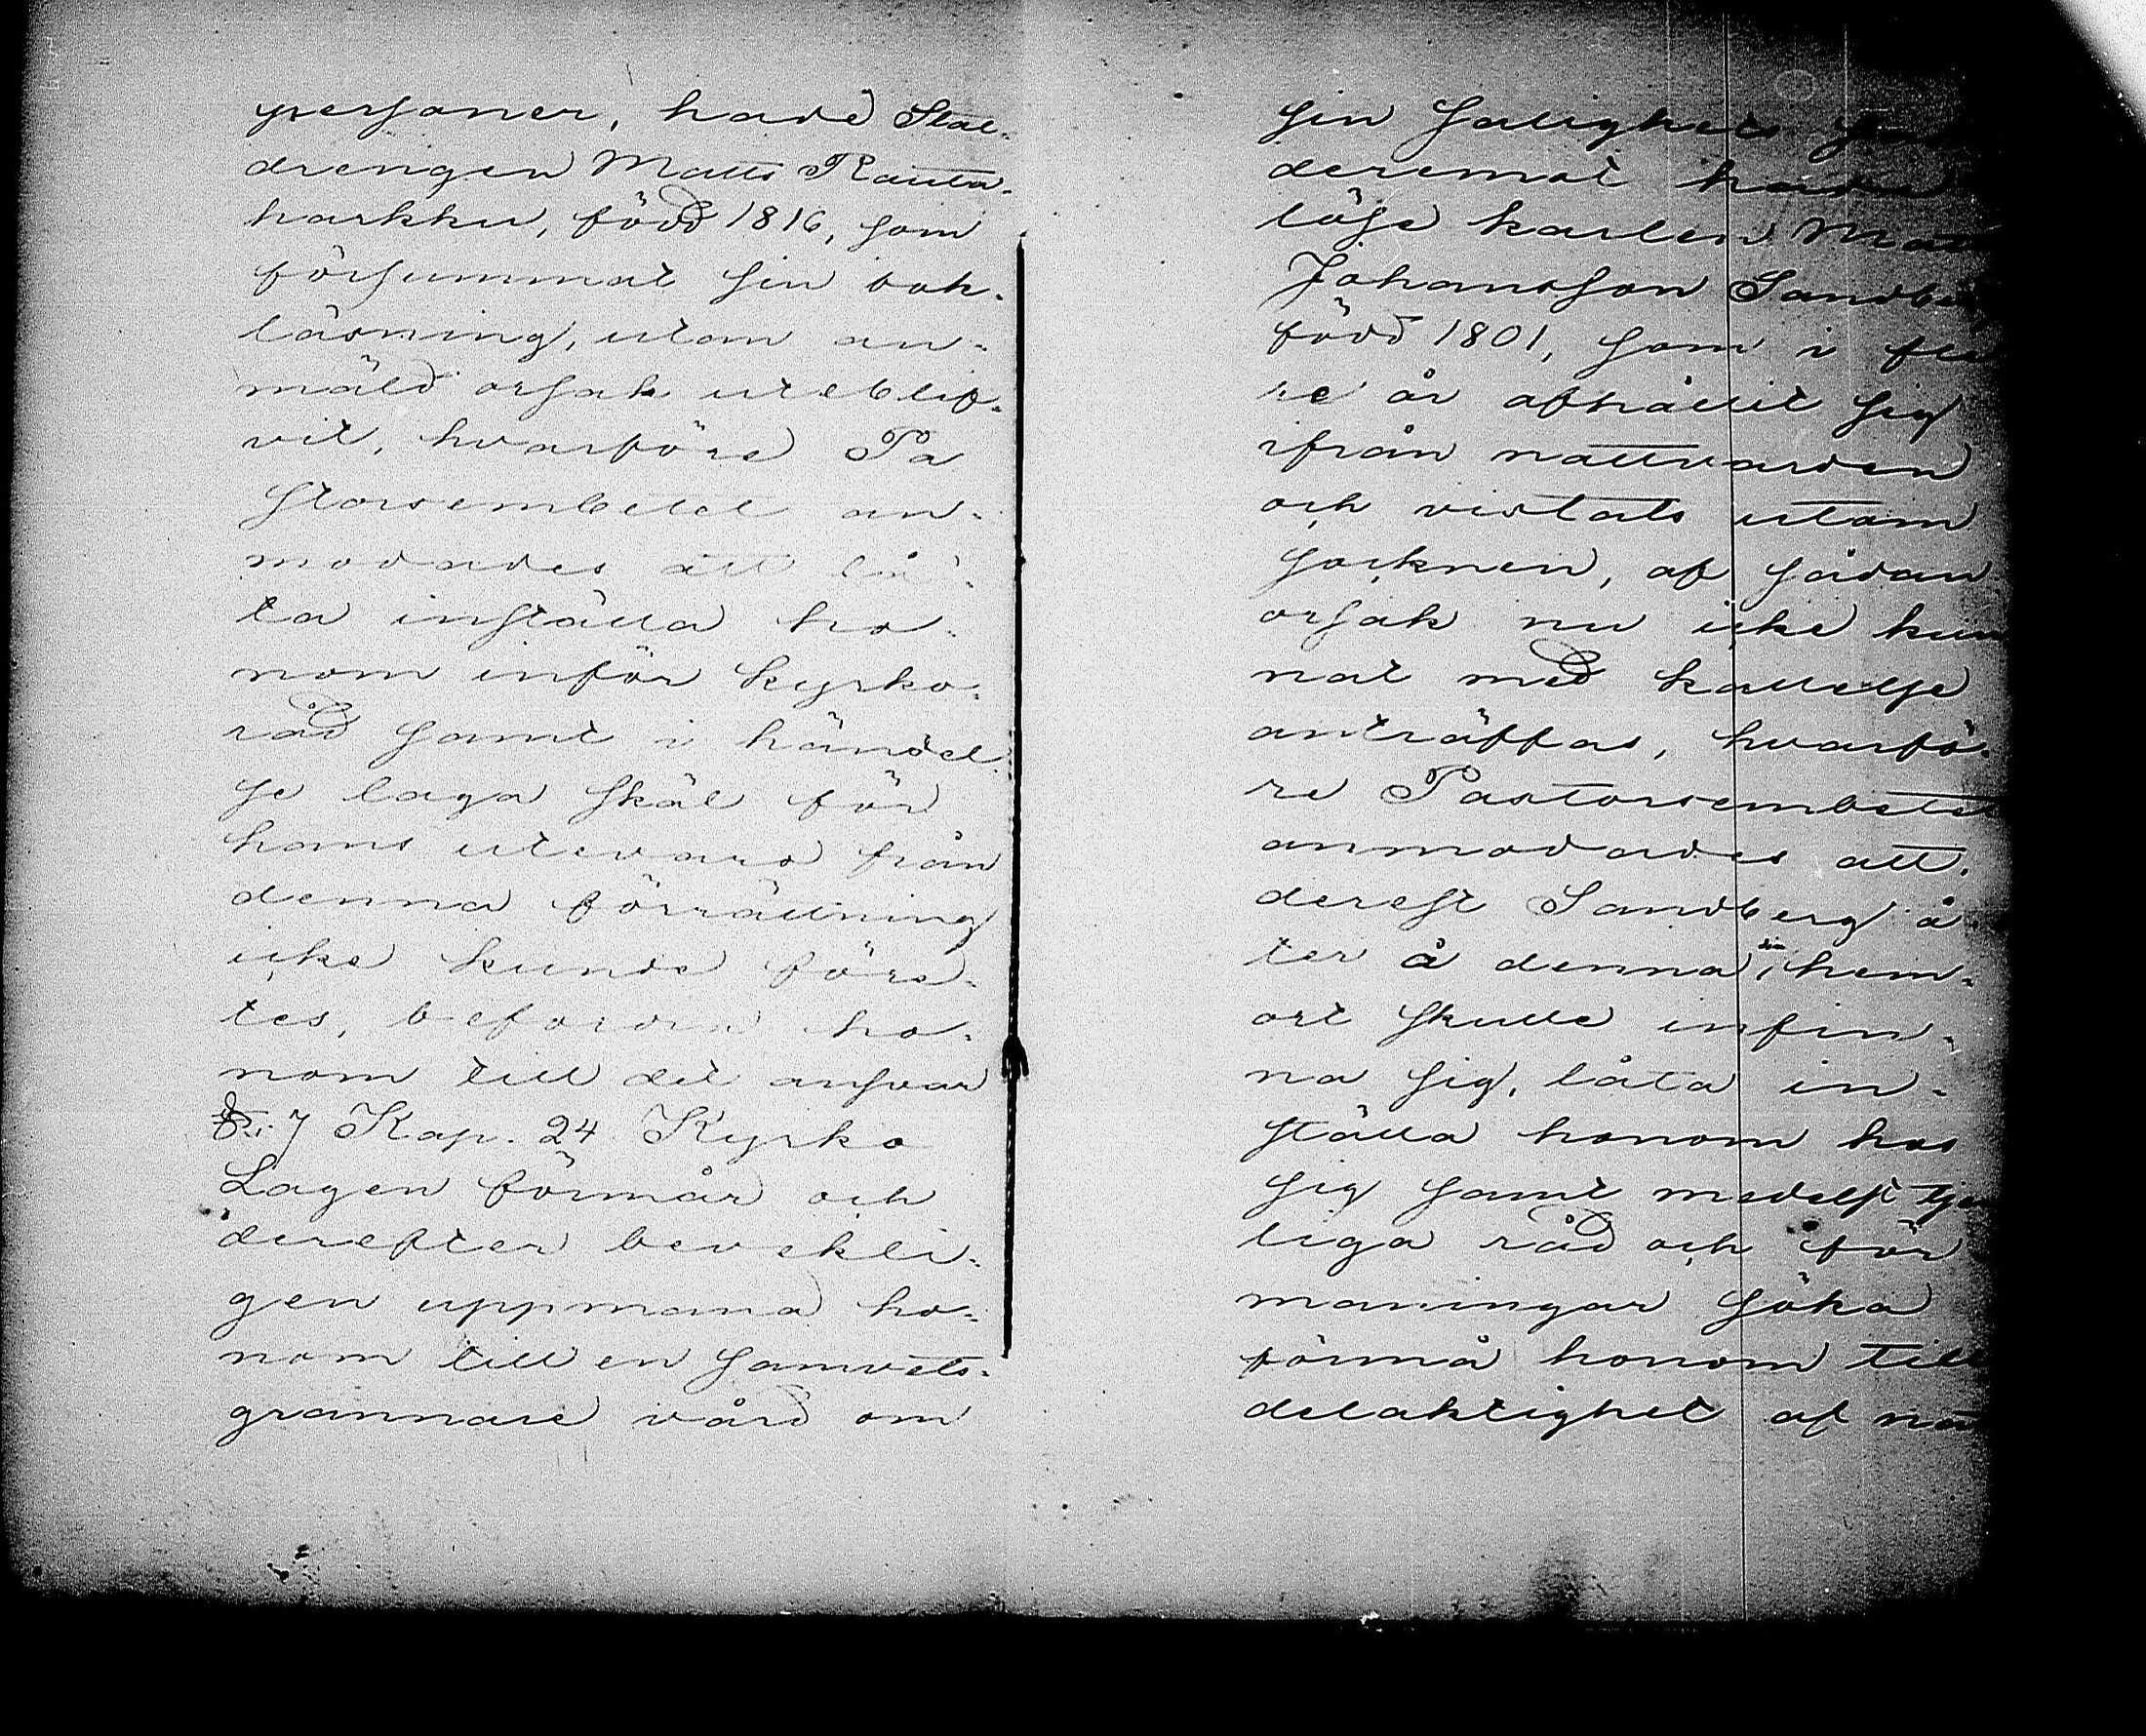 personer, hade Stal-
drengen Matts Rauta-
harkku, född 1816, som
försummat sin bok-
läsning, utan an-
mäld orsak uteblif-
vit, hvarföre Pa
storsembetet an-
modades att lå-
ta inställa ho-
nom inför kyrko-
råd samt i händel-
se laga skäl för
hans utevaro från
denna förrättning
icke kunde före-
tes, befordra ho-
nom till det ansvar
§. 7 Kap. 24 Kyrko
Lagen förmår och
derefter bevekli-
gen uppmana ho-
nom till en samvets-
grannare vård om
sin salighets
deremot hade
löse karlen Mat
Johansson Sandber
född 1801, som i fle
re år afhållit sig
ifrån nattvarden
och vistats utom
socknen, af sådan
orsak nu icke kun
nat med kallelse
anträffas, hvarfö-
re Pastorsembetet
anmodades att,
derest Sandberg å-
ter å denna sin hem-
ort skulle infin-
na sig, låta in-
ställa honom hos
sig samt medelst tjen
liga råd och för
maningar söka
förmå honom till
delaktighet af nat